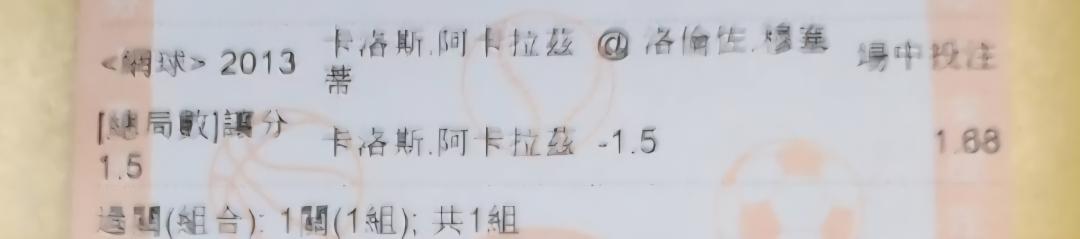 <網球> 2013 卡洛斯.阿卡拉茲 @ 洛倫佐.穆塞蒂 場中投注
[總局數]讓分 1.5 卡洛斯.阿卡拉茲 -1.5 1.68
過關(組合): 1關(1組); 共1組